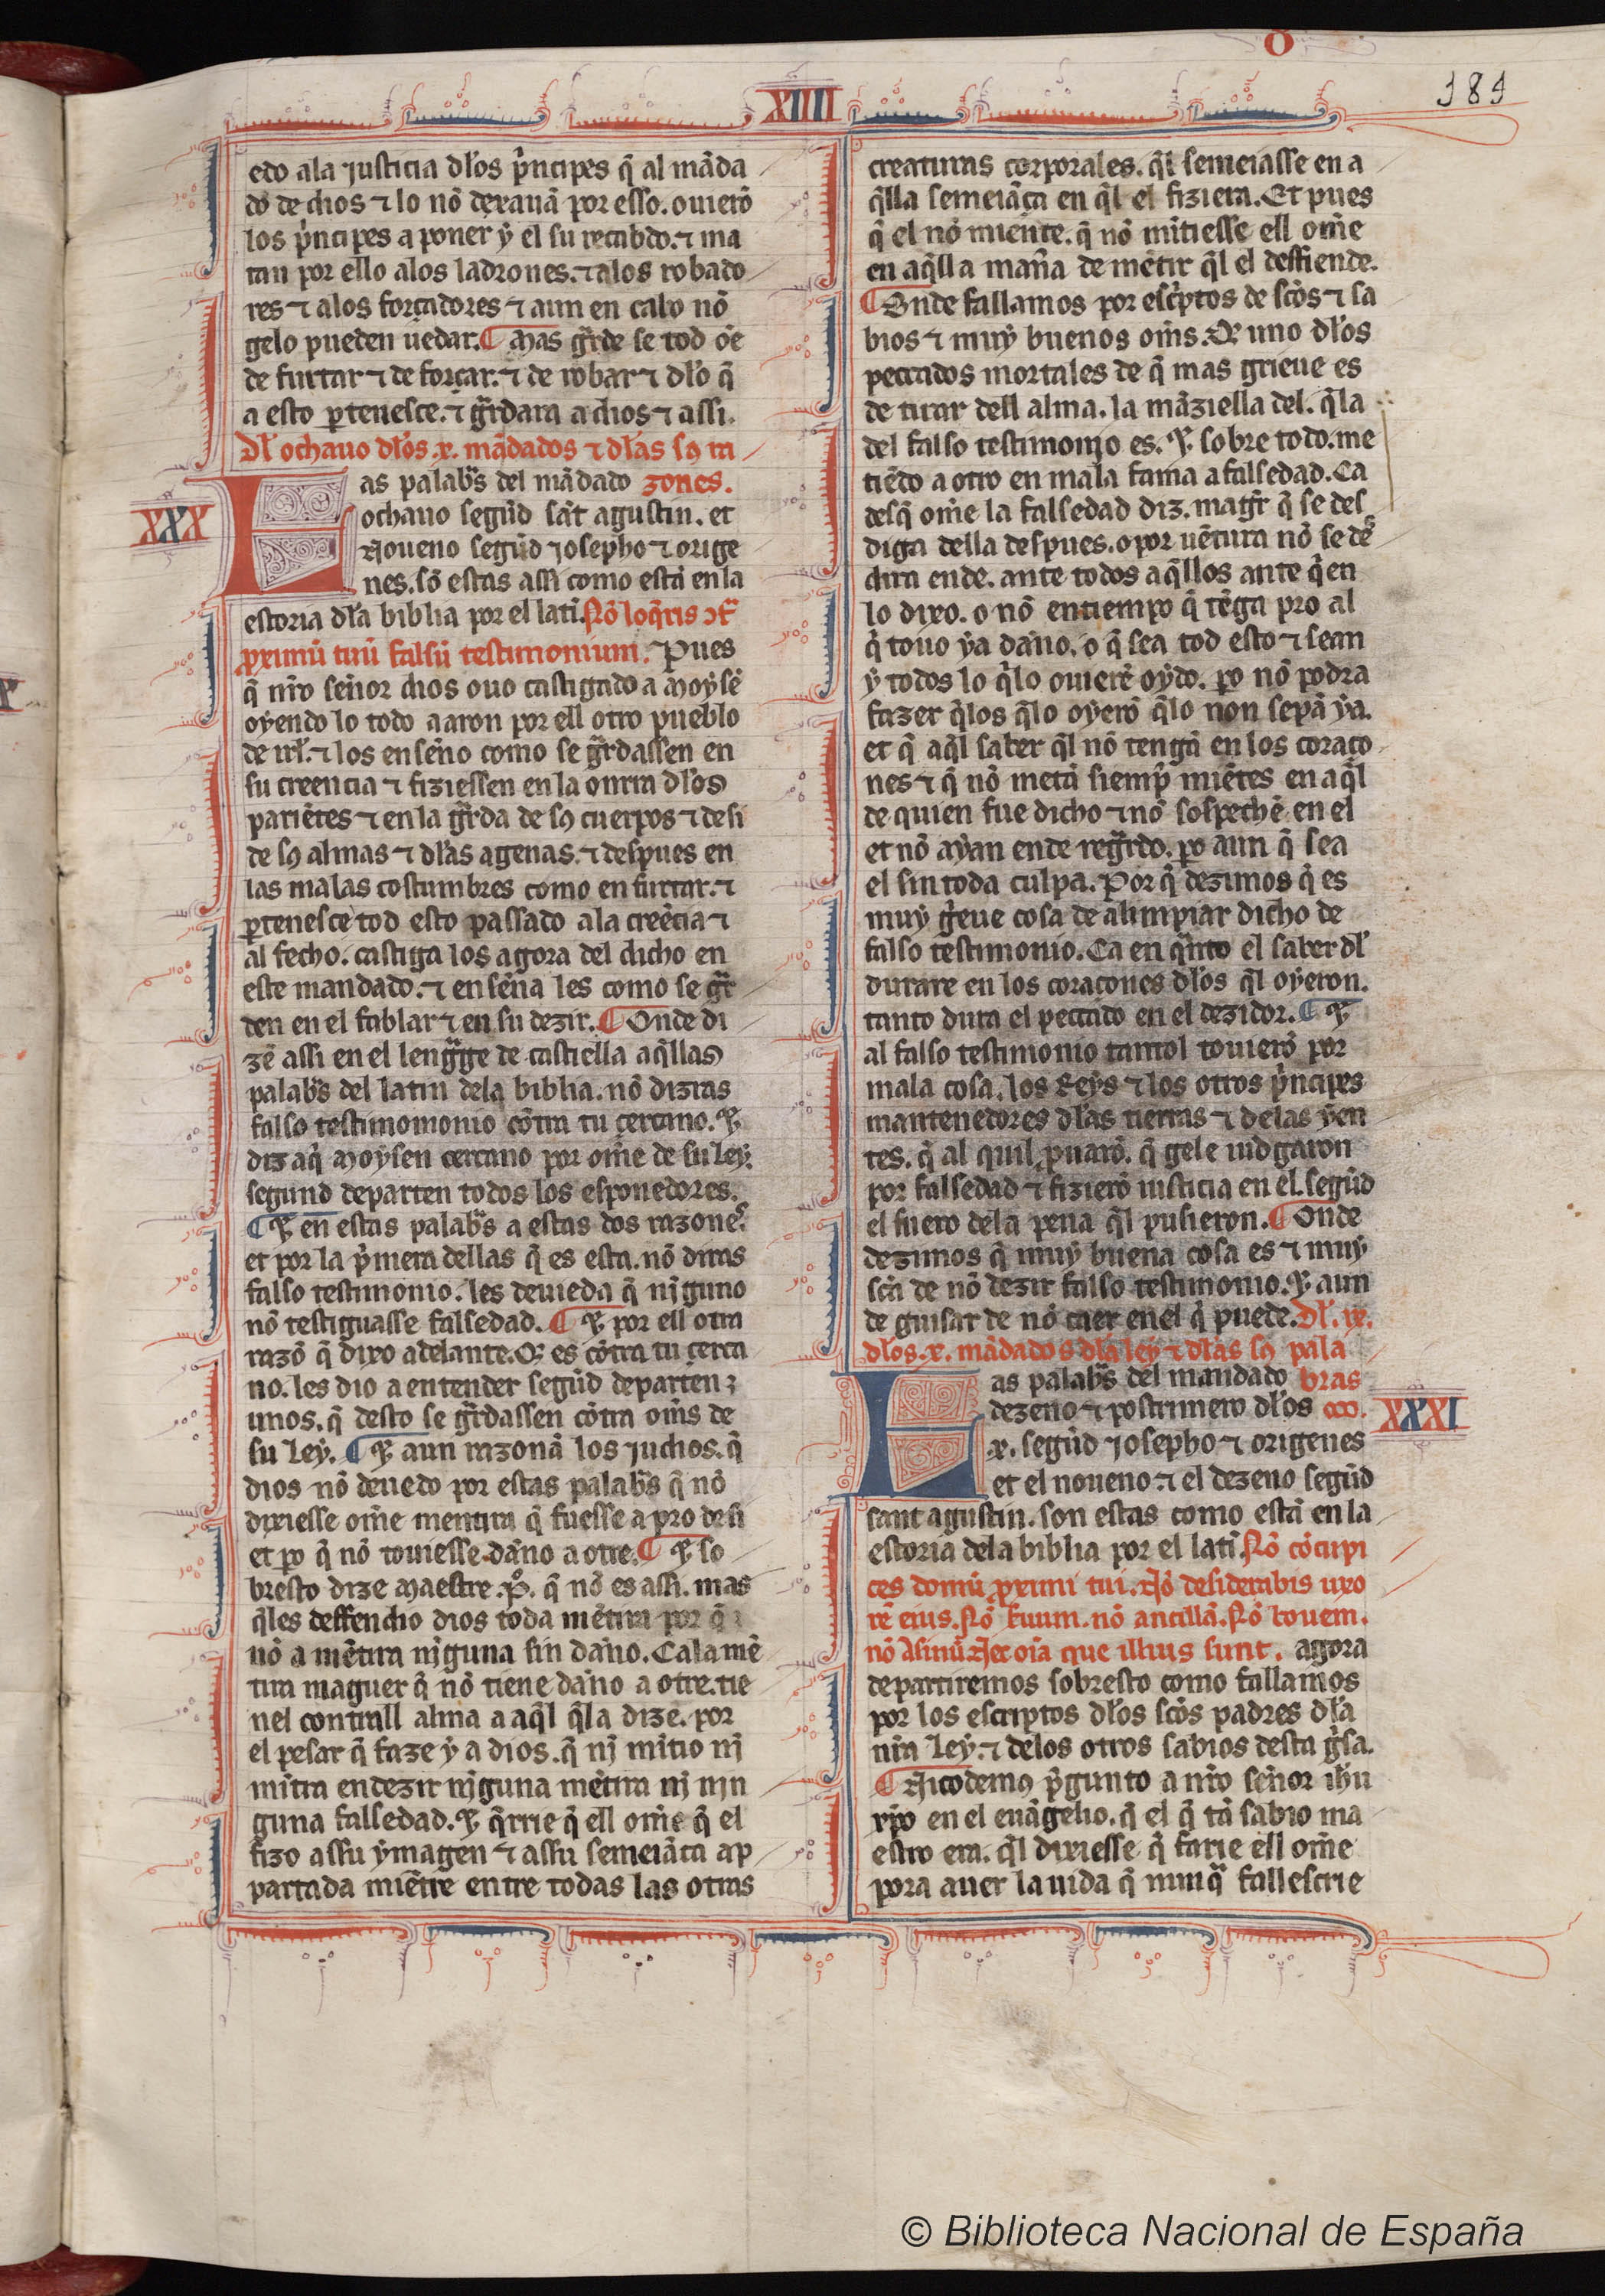 O
XIIII
189
edo ala iusticia dl'os p̃ncipes q̃ al mãda
do de dios ⁊ lo nõ dexauã por esso. ouierõ
los p̃ncipes a poner ẏ el su recabdo. ⁊ ma
tan por ello alos ladrones. ⁊ alos robado
res ⁊ alos forçadores ⁊ aun en cabo nõ
gelo pueden uedar. ¶ Mas gr̃de se tod õe
de furtar ⁊ de forçar. ⁊ de robar ⁊ dl'o q̃
a esto ꝑtenesce. ⁊ gr̃dara a dios ⁊ assi.
Dl' ochauo dl'os .x. mãdados ⁊ dl'as sꝯ ra
XXX
Las palab̃s del mãdado zones.
ochauo segũd sãt agustin. et
Noueno segũd iosepho ⁊ orige
nes. sõ estas assi como estã en la
estoria dl'a biblia por el latĩ. Nõ loq̃ris ↄt̃
ꝓximũ tuũ falsũ testimonium. Pues
q̃ nr̃o señor dios ouo castigado a Moysẽ
oyendo lo todo aaron por ell otro pueblo
de irl'. ⁊ los enseño como se gr̃dassen en
su creencia ⁊ fiziessen en la onrra dl'os
pariẽtes ⁊ en la gr̃da de sꝯ cuerpos ⁊ desi
de sꝯ almas ⁊ dl'as agenas. ⁊ despues en
las malas costumbres como en furtar. ⁊
ꝑtenesce tod esto passado ala creẽcia ⁊
al fecho. castiga los agora del dicho en
este mandado. ⁊ enseña les como se gr̃
den en el fablar ⁊ en su dezir. ¶ Onde di
zẽ assi en el lengũge de castiella aq̃llas
palab̃s del latin dela biblia. nõ dizras
falso testimomonio cõtra tu çercano. ⁊
diz aq̃ Moysen cercano por om̃e de su ley.
segund departen todos los esponedores.
¶ ⁊ en estas palab̃s a estas dos razones.
et por la p̃mera dellas q̃ es esta. nõ diras
falso testimonio. les deuieda q̃ njguno
nõ testiguasse falsedad. ¶ ⁊ por ell otra
razõ q̃ dixo adelante. Q̃ es cõtra tu çerca
no. les dio a entender segũd departen
unos. q̃ desto se gr̃dassen cõtra om̃s de
su Ley. ¶ ⁊ aun razonã los judios. q̃
dios nõ deuedo por estas palab̃s q̃ nõ
dixiesse om̃e mentira q̃ fuesse a pro desi
et ꝑo q̃ nõ touiesse daño a otre. ¶ ⁊ so
bresto dize Maestre .P̊. q̃ nõ es assi. mas
q̃les deffendio dios toda mẽtira por q̃
nõ a mẽtira njguna sin daño. Ca la mẽ
tira maguer q̃ nõ tiene daño a otre. tie
nel contrall alma a aq̃l q̃la dize. por
el pesar q̃ faze ẏ a dios. q̃ nj mĩtio nj
mĩtra en dezir njguna mẽtira nj njn
guna falsedad. ⁊ q̃rrie q̃ ell om̃e q̃ el
fizo assu ẏmagen ⁊ assu semeiãça ap
partada miẽtre entre todas las otras
creaturas corporales. q̃l semeiasse en a
q̃lla semeiãça en q̃l el fiziera. Et pues
q̃ el nõ miente. q̃ nõ mĩtiesse ell om̃e
en aq̃lla mañ̃a de mẽtir q̃l el deffiende.
¶ Onde fallamos por esc̃ptos de scõs ⁊ sa
bios ⁊ muy buenos om̃s. Q̃ uno dl'os
peccados mortales de q̃ mas grieue es
de tirar dell alma. la mãziella del. q̃la
del falso testimonio es. ⁊ sobre todo. me
tiẽdo a otro en mala fama a falsedad. Ca
desq̃ om̃e la falsedad diz. magr̃ q̃ se des
diga della despues. o por uẽtura nõ se des
dira ende. ante todos aq̃llos ante q̃en
lo dixo. o nõ en tiempo q̃ tẽga pro al
q̃ touo ẏa daño. o q̃ sea tod esto ⁊ sean
ẏ todos lo q̃lo ouierẽ oẏdo. ꝑo nõ podra
fazer q̃los q̃lo oyerõ q̃lo non sepã ẏa.
et q̃ aq̃l saber q̃l nõ tengã en los coraço
nes ⁊ q̃ nõ metã siemp̃ miẽtes en aq̃l
de quien fue dicho ⁊ nõ sospechẽ en el
et nõ ayan ende regr̃do. ꝑo aun q̃ sea
el sin toda culpa. Por q̃ dezimos q̃ es
muy g̃eue cosa de alimpiar dicho de
falso testimonio. Ca en q̃nto el saber dl'
durare en los coraçones dl'os q̃l oyeron.
tanto dura el peccado en el dezidor. ¶ ⁊
al falso testimonio tantol touierõ por
mala cosa. los Reẏs ⁊ los otros p̃ncipes
mantenedores dl'as tierras ⁊ delas ẏen
tes. q̃ al quil ꝓuarõ. q̃ gele iudgaron
por falsedad ⁊ fizierõ iusticia en el. segũd
el fuero dela pena q̃l pusieron. ¶ Onde
dezimos q̃ muy buena cosa es ⁊ muy
scã de nõ dezir falso testimonio. ⁊ aun
de guisar de nõ caer en el q̃ puede. Dl' .ix.
dl'os .x. mãdados dl'a ley ⁊ dl'as sꝯ pala
XXXI
Las palab̃s del mandado bras
dezeno ⁊ postrimero dl'os
.x. segũd iosepho ⁊ origenes
et el noueno ⁊ el dezeno segũd
sant agustin. son estas como estã en la
estoria dela biblia por el latĩ. Nõ cõcupi
ces domũ ꝓximi tui. Nõ desiderabis uxo
rẽ eius. Nõ ẜuum. nõ ancillã. Nõ bouem.
nõ asinũ. Nec oĩa que illius sunt. agora
departiremos sobresto como fallamos
por los escriptos dl'os scõs padres dl'a
nr̃a Ley. ⁊ delos otros sabios desta g̃sa.
¶ Nicodemꝯ p̃gunto a nr̃o señor ih̃u
xp̃o en el euãgelio. q̃ el q̃ tã sabio ma
estro era. q̃l dixiesse q̃ farie ell om̃e
pora auer la uida q̃ nunq̃ fallescrie
© Biblioteca Nacional de España